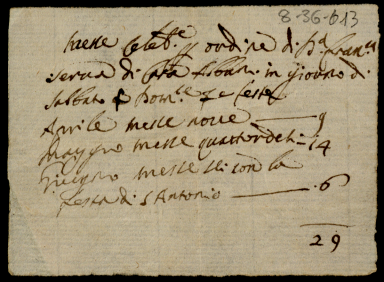 8-36-613
Messe Celeb.e p ordine di
serva di Casa in giorno di
Sabbato Dom.ce e feste
Aprile messe nove — 9
Maggio messe quattordeci - 14
Giugno messe sei con la
festa di S Antonio — 6
29